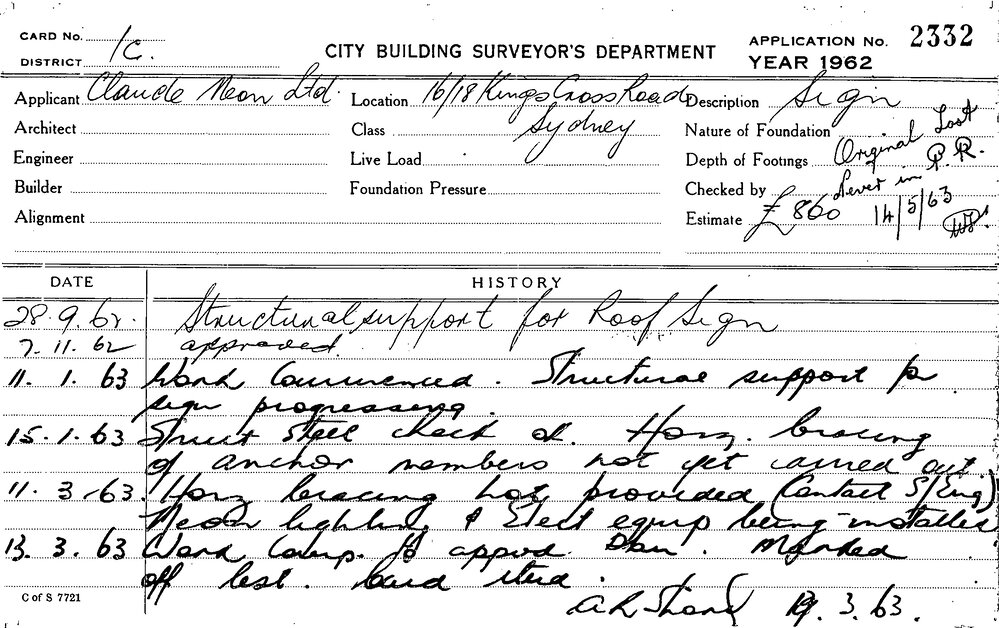 CARD No. 1C.
DISTRICT
CITY BUILDING SURVEYOR'S DEPARTMENT
APPLICATION No. 2332
YEAR 1962
Applicant Claude Neon Ltd.
Location 16/18 Kings Cross Road
Sydney
Description Sign
Architect
Class
Nature of Foundation
Original Lost
Engineer
Live Load
Depth of Footings
P.R.
Builder
Foundation Pressure
Checked by
Never in
Alignment
Estimate £860
14/5/63
DATE
HISTORY
28.9.62. Structural support for Roof Sign
7.11.62 approved.
11.1.63 Work Commenced. Structural support for
sign progressing.
15.1.63 Struct Steel check ok. Horz. bracing
of anchor members not yet carried out
11.3.63. Horz bracing not provided (Contact S/Eng)
Neon lighting & Elect equip being installed
13.3.63 Work Comp. to appvd. Marked
off
19.3.63.
C of S 7721